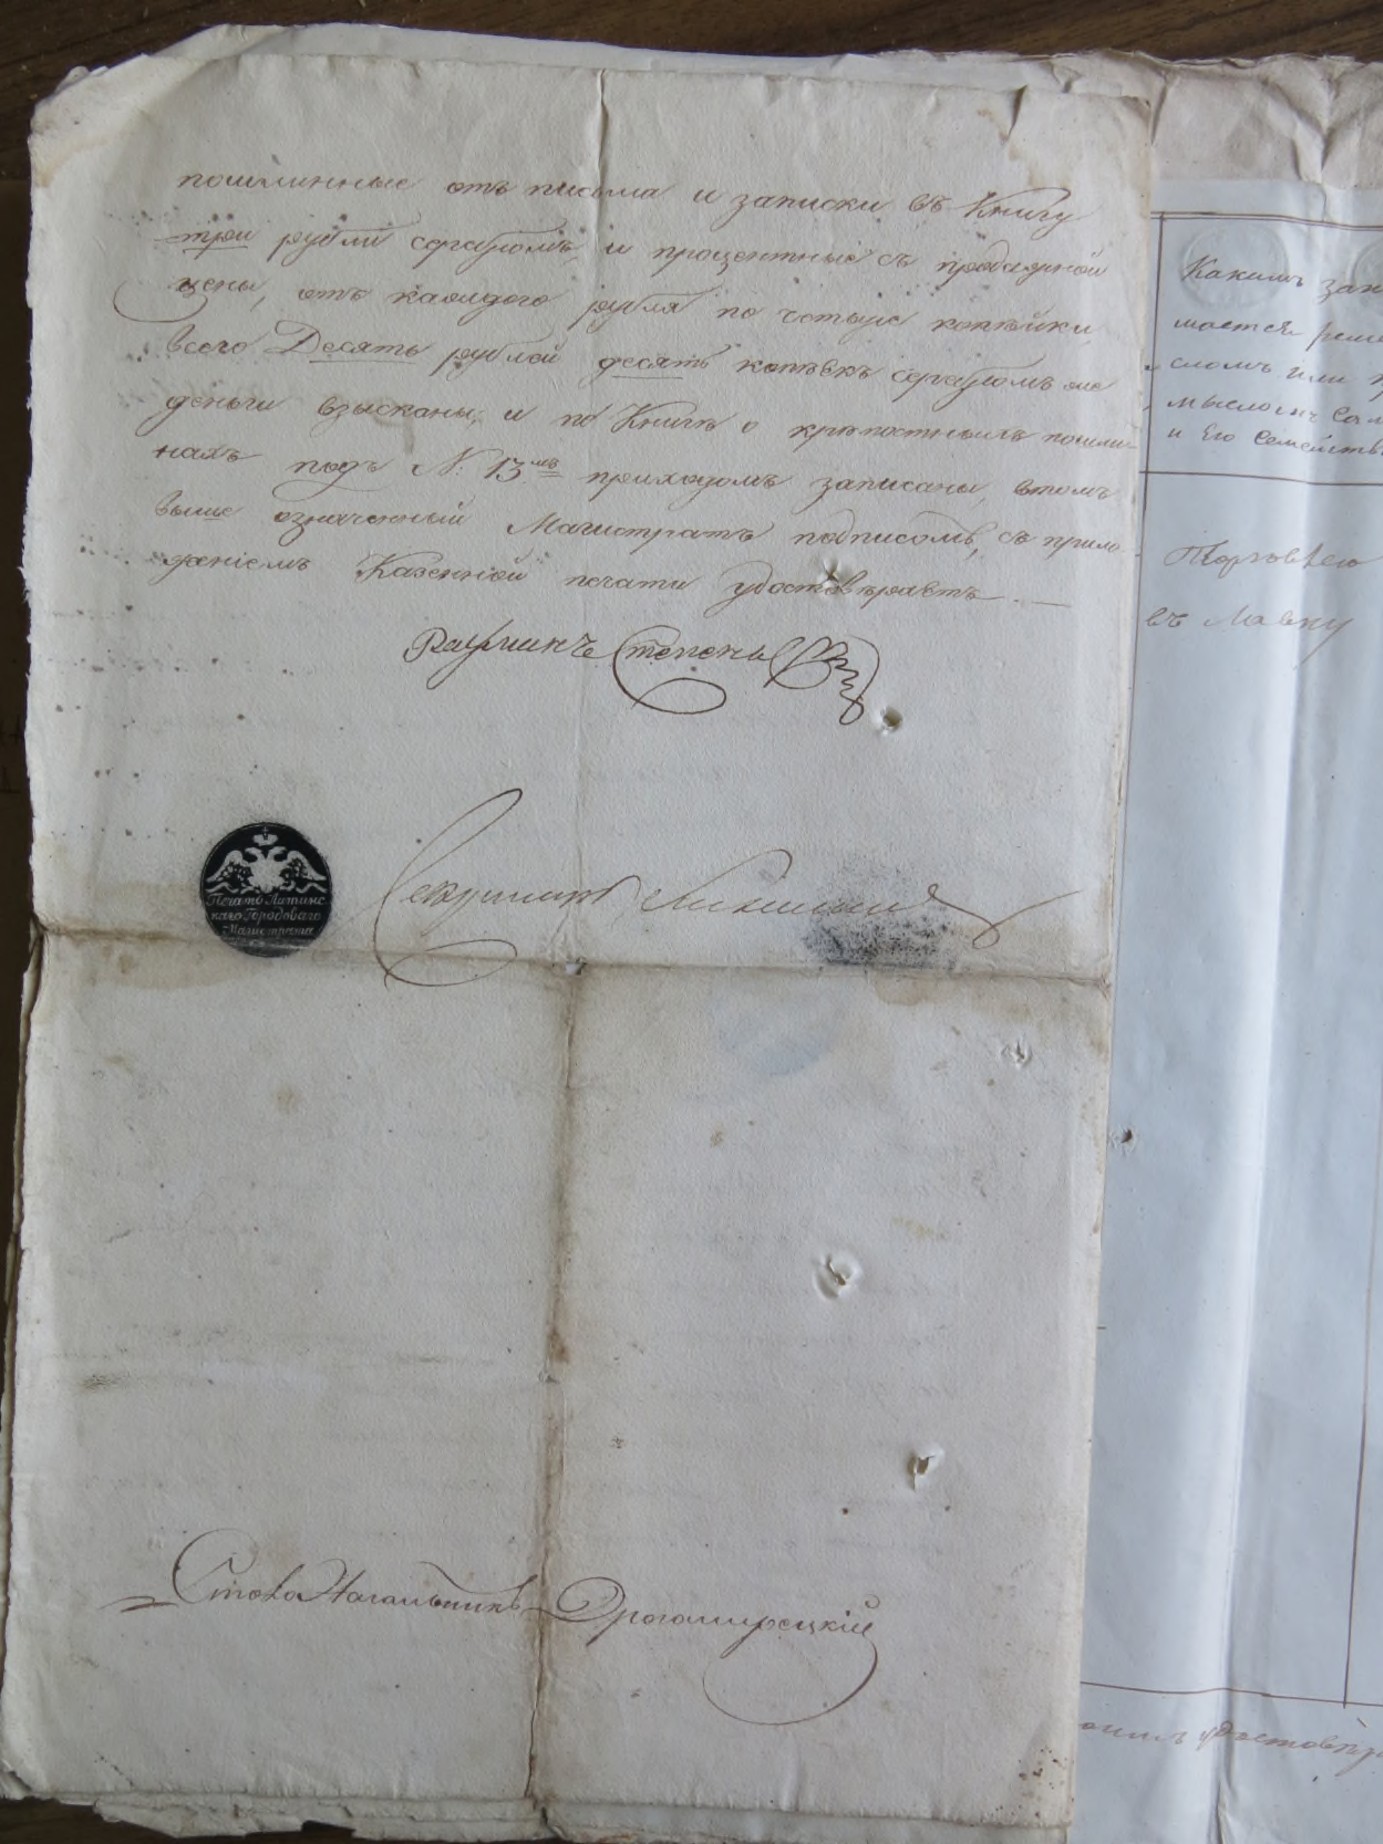 пошлинные отъ письма и записки въ Книгу
три рубли серебромъ, и процентные съ продажной
цены, отъ каждого рубля по четыре копѣйки,
всего Десять рублей десять копѣекъ серебромъ
деньги взысканы, и по Книгѣ о крѣпостныхъ пошли-
нахъ подъ N: 13.мъ приходомъ записаны, втомъ
выше означенный Магистратъ подписомъ, съ прило-
женіемъ Казенной печати удостовѣряетъ
Степень
Печать Литинс
каго Городоваго
Магистрата
Столоначальникъ Дрогомирецкій
Какимъ зан
мается реме
сломъ или п
мысломъ Сам
и Его Семейств
Торговлею
въ Лавку
удостовѣр